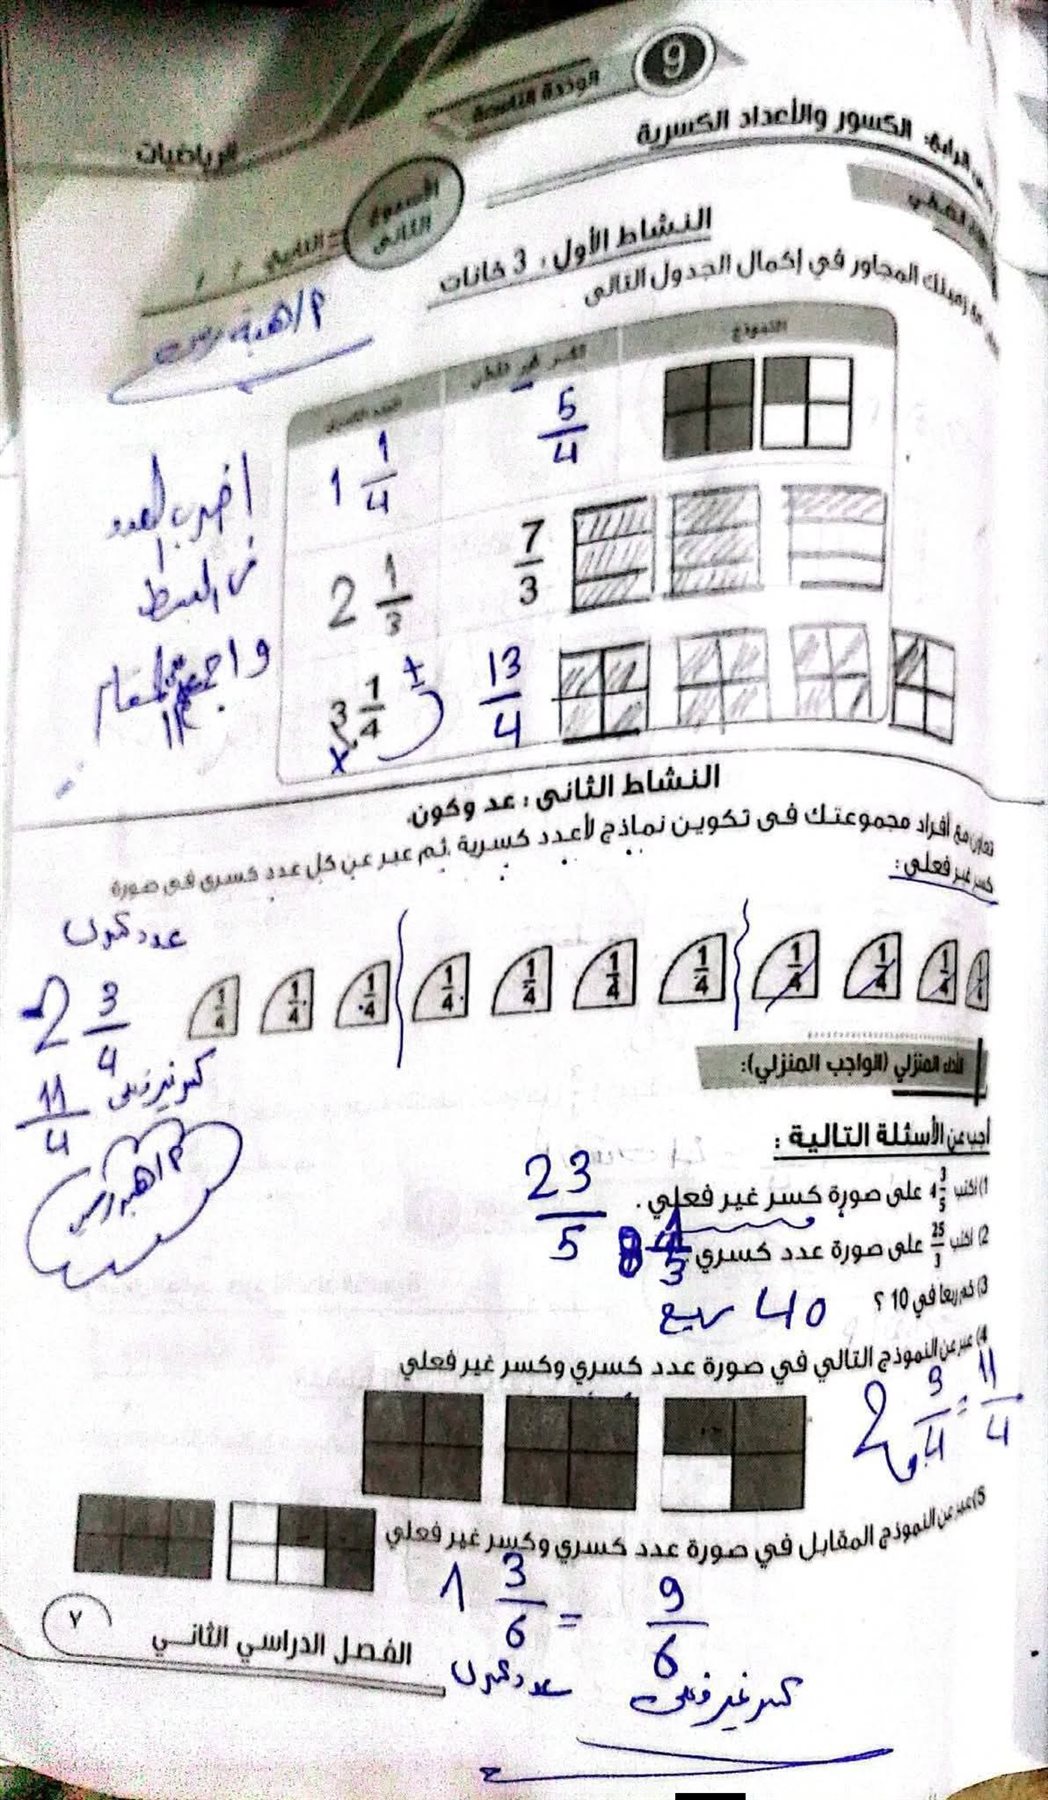 9
الوحدة التاسعة
الرياضيات
الكسور والأعداد الكسرية
الأسبوع الثاني
التاريخ / /
النشاط الأول : 3 خانات
زميلك المجاور في إكمال الجدول التالى
م/هبة
النموذج
كسر غير فعلي
العدد الكسري
5/4
1 1/4
اضرب العدد
7/3
2 1/3
فى البسط
13/4
3 1/4
±
x
النشاط الثانى : عد وكون.
تعاون مع أفراد مجموعتك فى تكوين نماذج لأعدد كسرية .ثم عبر عن كل عدد كسرى فى صورة
كسر غير فعلى :
عدد كسرى
1/4 1/4 1/4 1/4 1/4 1/4 1/4 1/4 1/4 1/4 1/4
2 3/4
كسر غير فعلى
11/4
الأداء المنزلي (الواجب المنزلي):
أجب عن الأسئلة التالية :
1) اكتب 4 3/5 على صورة كسر غير فعلي .
23/5
2) اكتب 25/3 على صورة عدد كسري
8 1/3
3) كم ربعا في 10 ؟
40 ربع
4) عبر عن النموذج التالي في صورة عدد كسري وكسر غير فعلي
2 3/4 = 11/4
5) عبر عن النموذج المقابل في صورة عدد كسري وكسر غير فعلي
1 3/6 = 9/6
عدد كسرى
كسر غير فعلى
الفصل الدراسي الثاني
٧